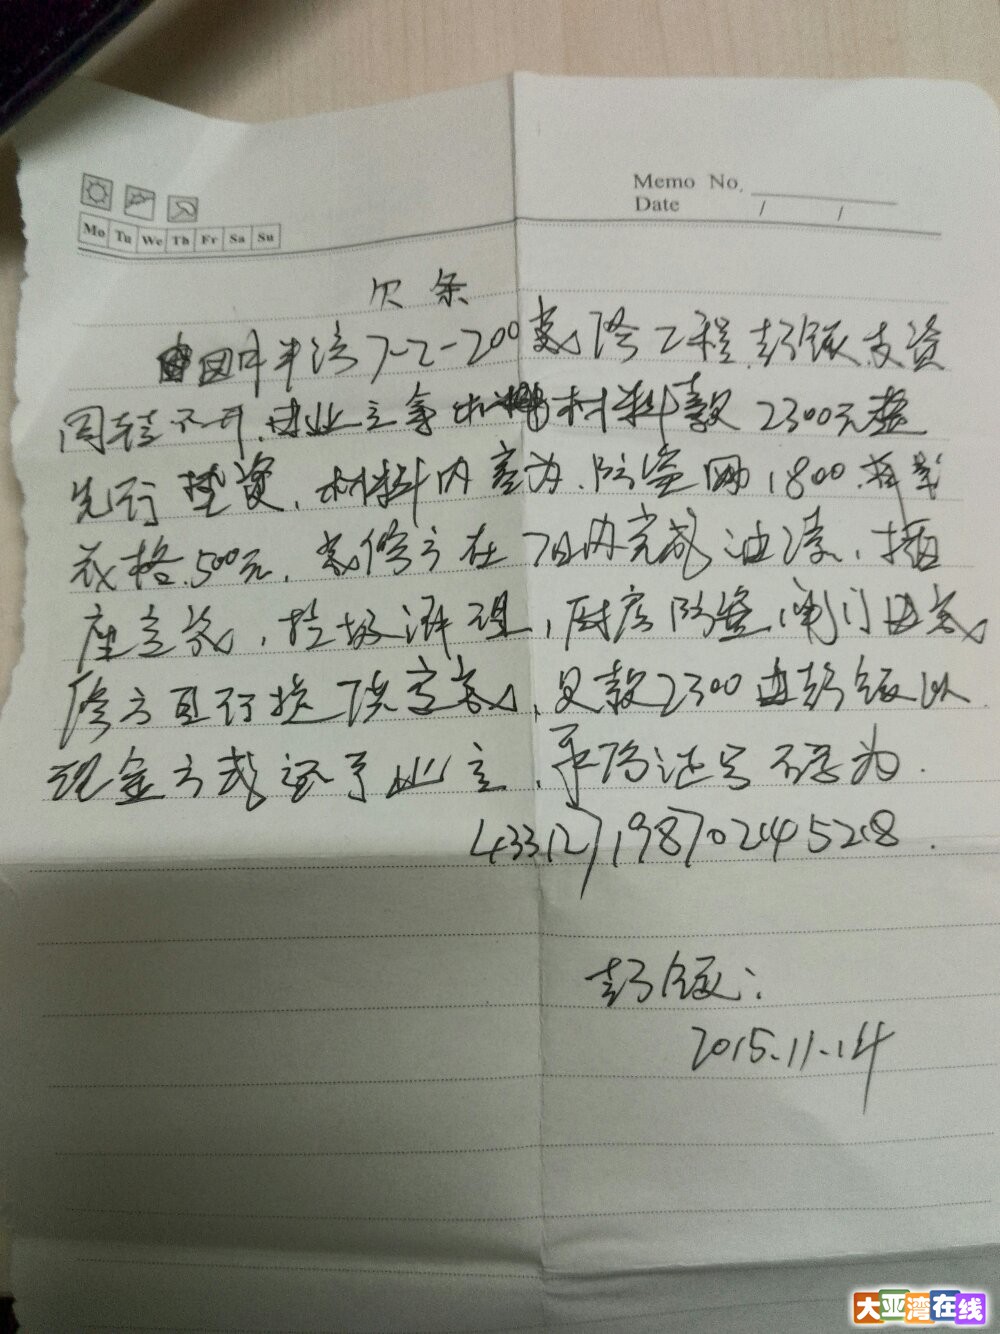 Memo No.
Date / /
Mo Tu We Th Fr Sa Su
欠条
因中洋湾7-2-200装修工程,彭 支资
周转不开,由业主拿 材料款2300元整
先行垫资,材料内容为.防盗网1800.
价格.500元,装修方在7日内完成油漆,插
座安装,垃圾清理,厨房防盗 门由装
修方自行提供安装,欠款2300由彭 以
现金方式还予业主,身份证号 为.
433127198702045218.
彭
2015.11.14
大亚湾在线